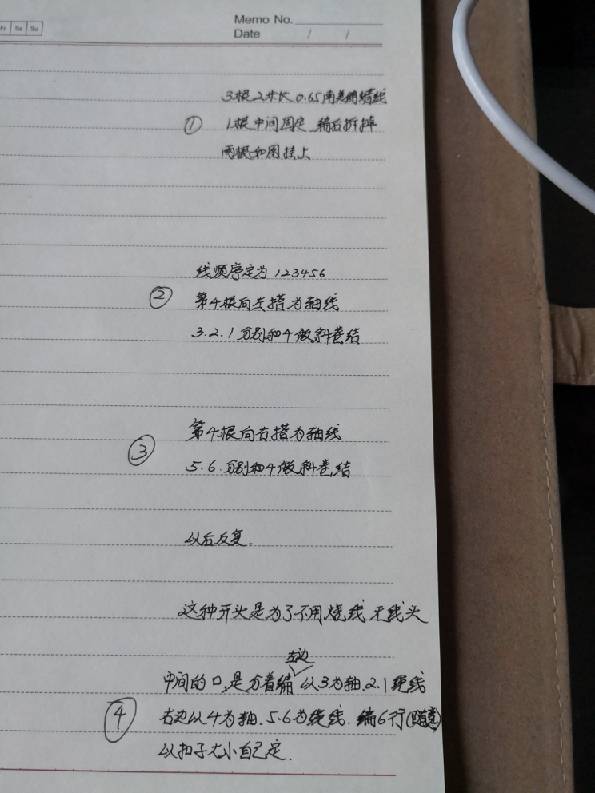 Sa
Su
Memo No.
Date / /
3根2米长0.65南美蜡线
① 1根中间固定 编后拆掉
两根和用挂上
线顺序定为123456
② 第4根向左搭为轴线
3.2.1分别和4做斜卷结
第4根向右搭为轴线
③ 5.6.分别和4做斜卷结
以后反复.
这种开头是为了不用烧线 无线头
左边
中间的口,是分着编 以3为轴.2.1绕线
④ 右边以4为轴.5.6为绕线.编6行
以扣子大小自己定.